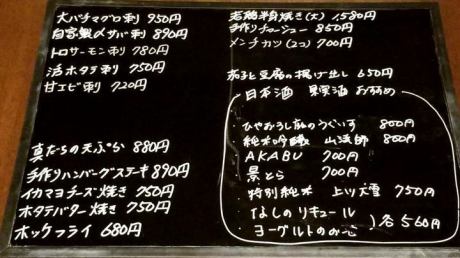 大バチマグロ刺 950円
自家製〆サバ刺 890円
トロサーモン刺 780円
活ホタテ刺 750円
甘エビ刺 720円
真だちの天ぷら 880円
手作りハンバーグステーキ 890円
イカマヨチーズ焼き 750円
ホタテバター焼き 750円
ホッケフライ 680円
若鶏半身焼き(大) 1,580円
手作りチャーシュー 850円
メンチカツ(2コ) 700円
茄子と豆腐の揚げ出し 650円
日本酒 果実酒 おすすめ
・ひやおろし 旅のうぐいす 800円
・純米吟醸 山法師 800円
・AKABU 700円
・景とら 700円
・特別純米 上川大雪 750円
・なしのリキュール
・ヨーグルトのお酒 )各560円